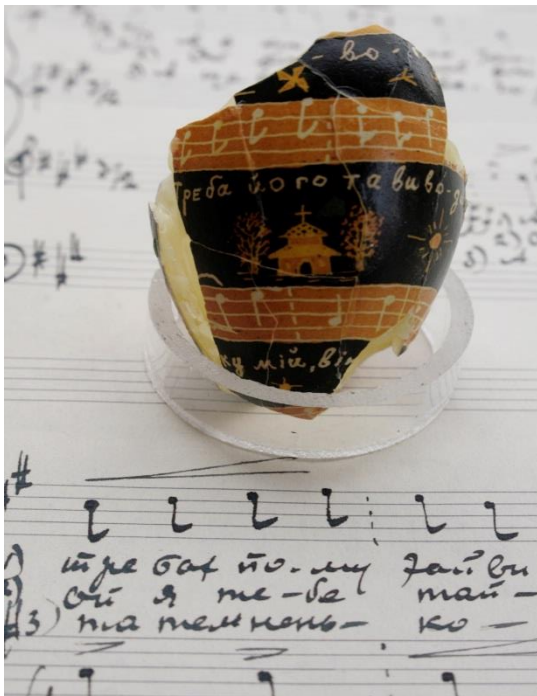 - во -
Треба його та виво -
ку мій, він
тре бах йо - му зай ви
ой я те - бе тай -
3) та темнень - ко -